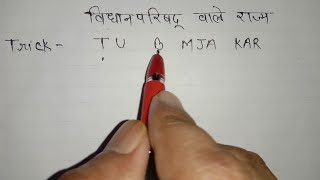 विधानपरिषद् वाले राज्य
Trick - T U B MJA KAR